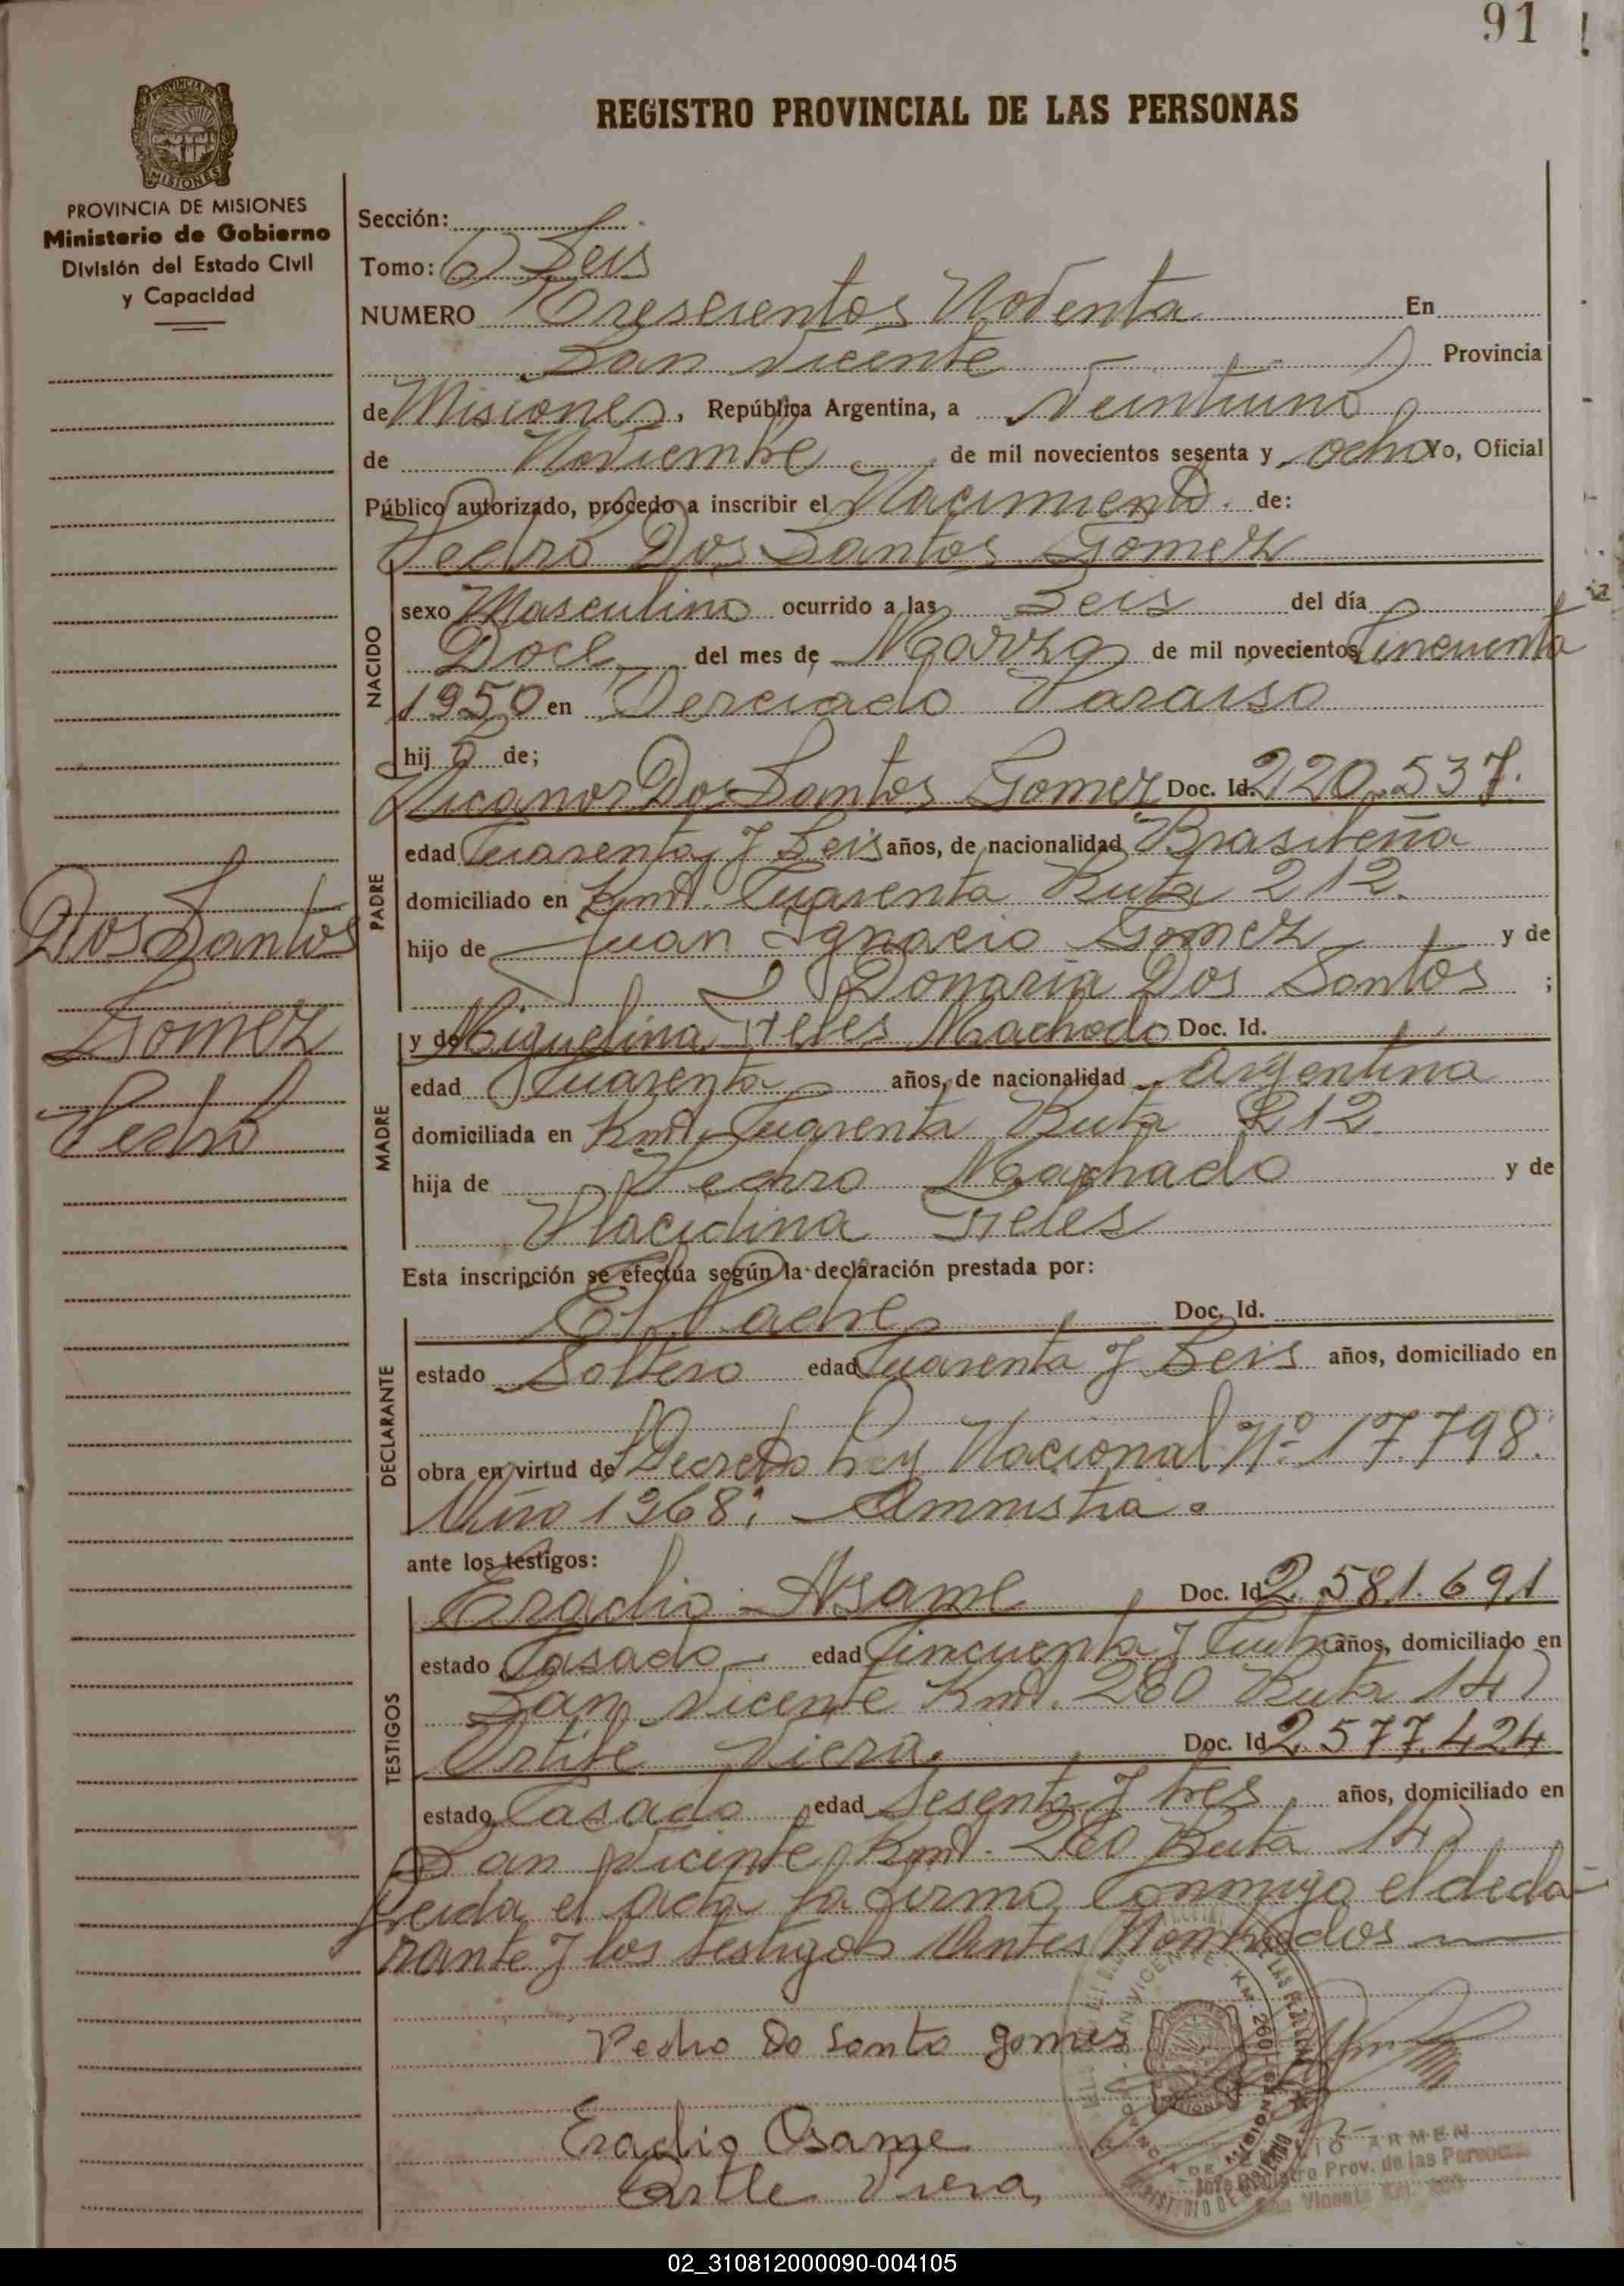 91
REGISTRO PROVINCIAL DE LAS PERSONAS
PROVINCIA DE MISIONES
Ministerio de Gobierno
División del Estado Civil
y Capacidad
Sección:
Tomo: 6) Seis
NUMERO Trescientos Noventa En
San Vicente Provincia
de Misiones, República Argentina, a Veintiuno
de Noviembre de mil novecientos sesenta y ocho Yo, Oficial
Público autorizado, procedo a inscribir el Nacimiento de:
Pedro Dos Santos Gomez
NACIDO
sexo Masculino ocurrido a las Seis del día
Doce del mes de Marzo de mil novecientos Cincuenta
1950 en Terciado Paraiso
hij o de;
PADRE
Nicanor Dos Santos Gomez Doc. Id. 220.537.
edad Cuarenta y Seis años, de nacionalidad Brasileña
domiciliado en Kmt. Cuarenta Ruta 212.
hijo de Juan Ignacio Gomez y de
Donaria Dos Santos ;
Dos Santos
Gomez
Pedro
MADRE
y de Miguelina Teles Machado Doc. Id.
edad Cuarenta años, de nacionalidad Argentina
domiciliada en Kmt. Cuarenta Ruta 212
hija de Pedro Machado y de
Placidina Teles
Esta inscripción se efectúa según la declaración prestada por:
DECLARANTE
El Padre Doc. Id.
estado Soltero edad Cuarenta y Seis años, domiciliado en
obra en virtud de Decreto Ley Nacional Nº 17.798.
Año 1968. Amnistia.
ante los testigos:
TESTIGOS
Eradio Asame Doc. Id 2.581.691
estado Casado edad Cincuenta y años, domiciliado en
San Vicente Kmt. 260 Ruta 14)
Ortile Viera. Doc. Id 2.577.424
estado Casado edad Sesenta y tres años, domiciliado en
San Vicente Kmt. 260 Ruta 14)
Leida el acta la firma Conmigo el decla-
rante y los testigos Antes Nombrados
Pedro Do Santo gomes
Eradio Osame
Viera
ARMEN
Jefe Registro Prov. de las Personas
San Vicente Km. 260
02_310812000090-004105